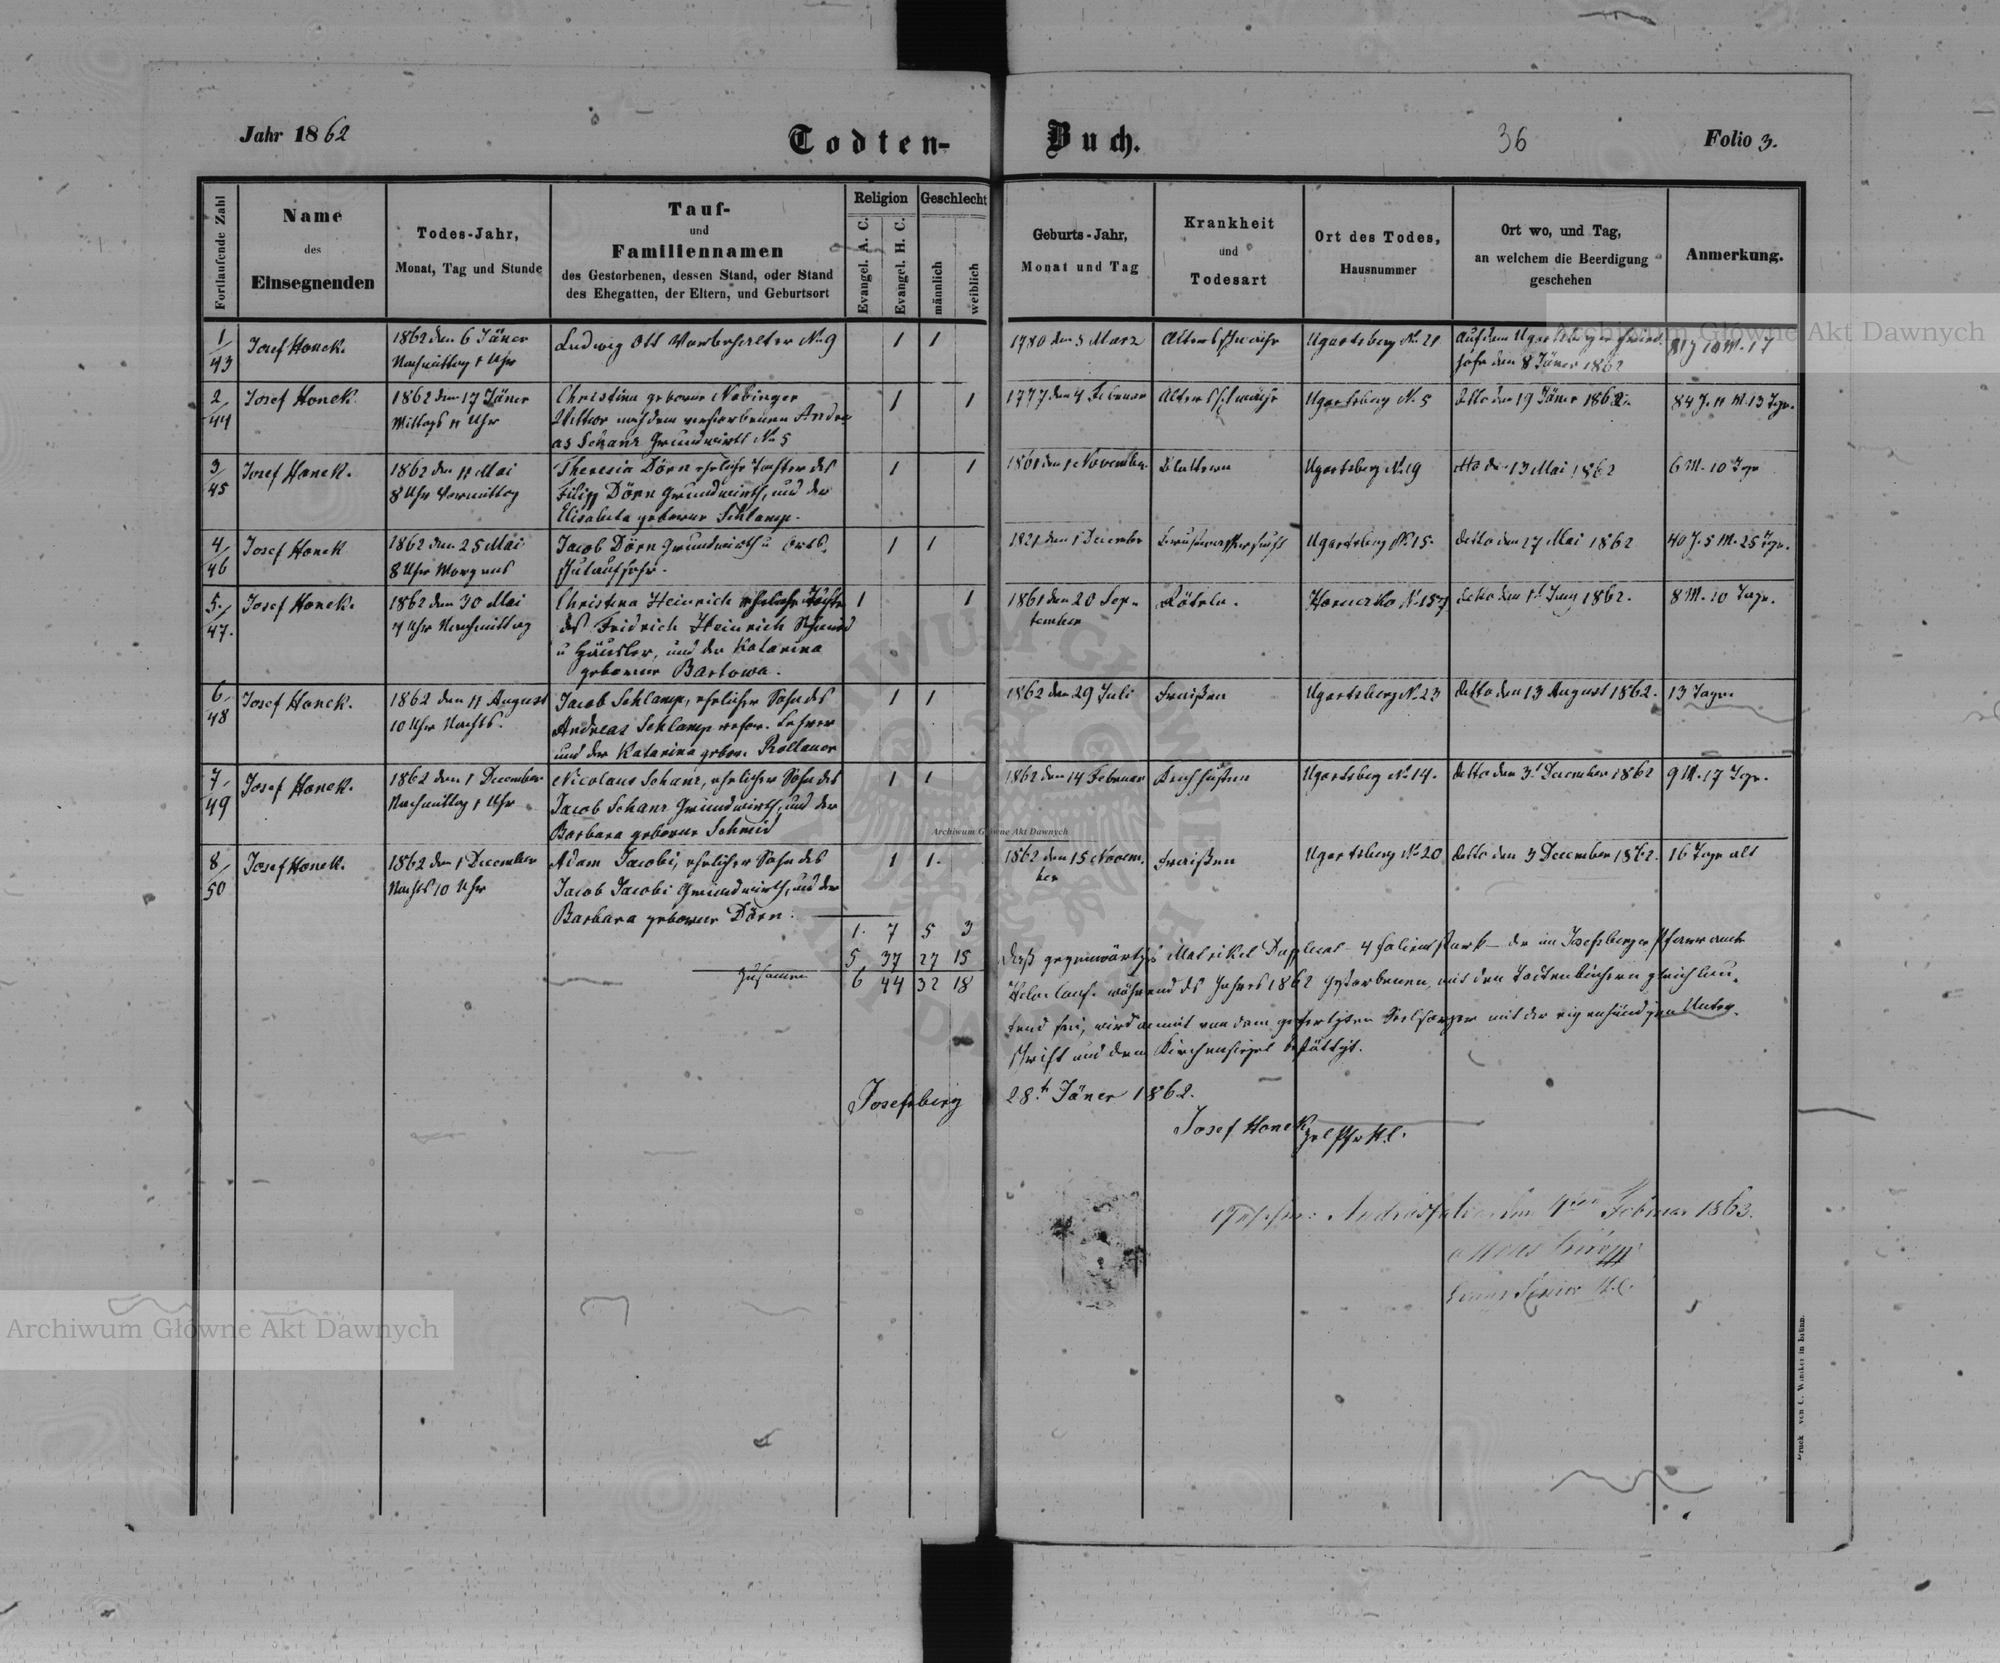 Jahr 1862
Todten-
Buch.
36
Folio 3.
Fortlaufende Zahl
Name
des
Einsegnenden
Todes-Jahr,
Monat, Tag und Stunde
Tauf-
und
Familiennamen
des Gestorbenen, dessen Stand, oder Stand
des Ehegatten, der Eltern, und Geburtsort
Religion
Evangel. A. C.
Evangel. H. C.
Geschlecht
männlich
weiblich
Geburts-Jahr,
Monat und Tag
Krankheit
und
Todesart
Ort des Todes,
Hausnummer
Ort wo, und Tag,
an welchem die Beerdigung
geschehen
Anmerkung.
1/43
Josef Honek.
1862 den 6 Jäner
Nachmittag 1 Uhr
Ludwig Ott Vorbehalter No 9
1 1
1780 den 3 März
Altersschwäche
Ugartsberg No 21
Auf dem Ugartsberger Fried-
hofe den 8 Jäner 1862
81 J 10 M. 17
2/44
Josef Honek
1862 den 17 Jäner
Mittags 11 Uhr
Christina geborne Nabinger
Wittwe nach dem verstorbenen Andre-
as Schanz Grundwirth No 5
1 1
1777 den 4 Februar
Altersschwäche
Ugartsberg No 5
Detto den 19 Jäner 1862.
84 J. 11 M. 13 Tge.
3/45
Josef Honek.
1862 den 11 Mai
8 Uhr Vormittag
Theresia Dörn eheliche Tochter des
Filipp Dörn Grundwirth, und der
Elisabeta geborne Schlamp.
1 1
1861 den 1 November
Blattern
Ugartsberg No 19
detto den 13 Mai 1862
6 M. 10 Tge
4/46
Josef Honek
1862 den 25 Mai
8 Uhr Morgens
Jacob Dörn Grundwirth u Orts-
schulaufseher.
1 1
1821 den 1 December
Brustwassersucht
Ugartsberg No 15.
detto den 27 Mai 1862
40 J. 5 M. 25 Tge.
5/47.
Josef Honek.
1862 den 30 Mai
4 Uhr Nachmittag
Christina Heinrich eheliche Tochter
des Fridrich Heinrich Schmied
u Häusler, und der Katarina
geborne Bartowa.
1 1
1861 den 20 Sep-
tember
Rötheln.
Horucko No 157
detto den 1t Juny 1862.
8 M. 10 Tage.
6/48
Josef Honek.
1862 den 11 August
10 Uhr Nachts.
Jacob Schlamp, ehelicher Sohn des
Andreas Schlamp refor. Lehrer
und der Katarina gebor. Rollauer
1 1
1862 den 29 Juli
Fraißen
Ugartsberg No 23
detto den 13 August 1862.
13 Tage.
7/49
Josef Honek.
1862 den 1 December
Nachmittag 1 Uhr
Nicolaus Schanz, ehelicher Sohn des
Jacob Schanz Grundwirth, und der
Barbara geborne Schmid
1 1
1862 den 14 Februar
Keuchhusten
Ugartsberg No 14.
detto den 3t December 1862
9 M. 17 Tge.
8/50
Josef Honek.
1862 den 1 December
Nachts 10 Uhr
Adam Jacobi, ehelicher Sohn des
Jacob Jacobi Grundwirth, und der
Barbara geborne Dörn.
1 1.
1862 den 15 Novem-
ber
Fraißen
Ugartsberg No 20
detto den 3 December 1862.
16 Tage alt
1. 7 5 3
5 37 27 15
Zusamen 6 44 32 18
Daß gegenwärtiges Matrikel Duplicat – 4 Folien stark – der im Josefsberger Pfarramte
während des Jahres 1862 gestorbenen, mit den Todtenbüchern gleichlau-
tend sei, wird anmit von dem gefertigten Seelsorger mit der eigenhändigen Unter-
schrift und dem Kirchensiegel bestättigt.
Josefsberg 28.t Jäner 1862.
Josef Honek
den 4ten Februar 1863.
Archiwum Główne Akt Dawnych
Archiwum Główne Akt Dawnych
Archiwum Główne Akt Dawnych
Druck von C. Winiker in Brünn.